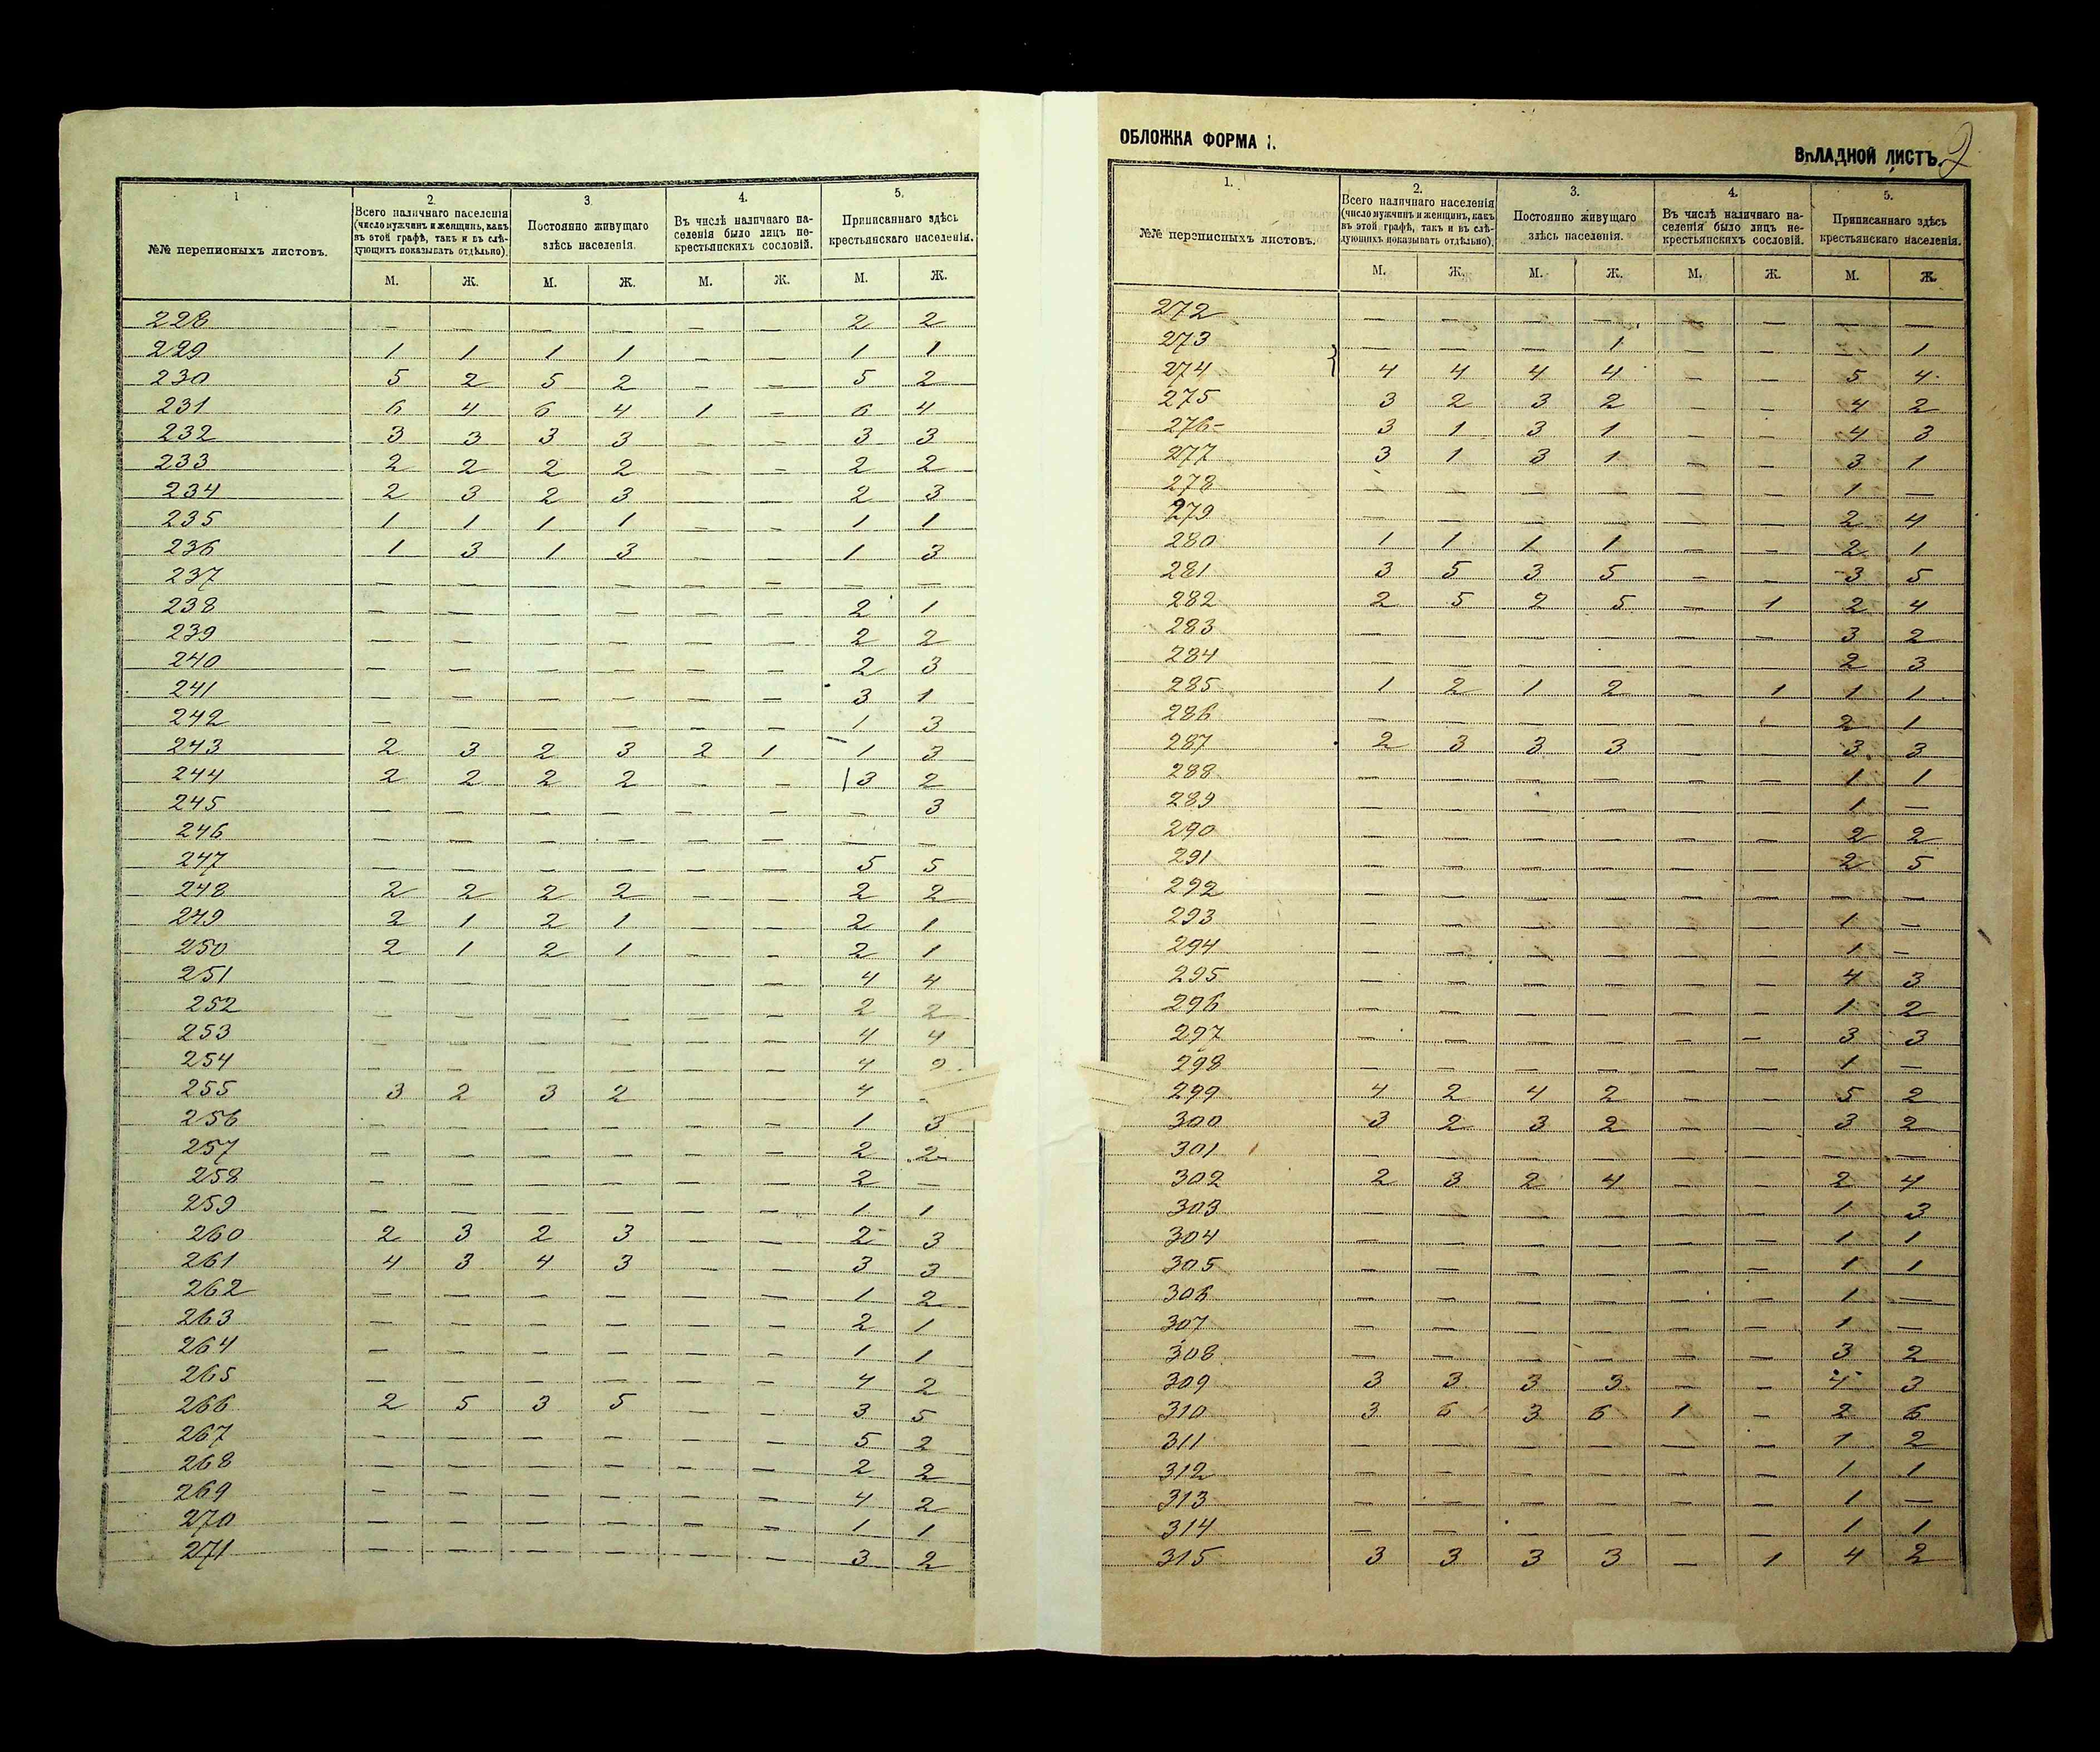 1
2.
3.
4.
5.
№№ переписныхъ листовъ.
Всего наличнаго населенія
(число мужчинъ и женщинъ, какъ
въ этой графѣ, такъ и въ слѣ-
дующихъ показывать отдѣльно).
Постоянно живущаго
здѣсь населенія.
Въ числѣ наличнаго на-
селенія было лицъ не-
крестьянскихъ сословій.
Приписаннаго здѣсь
крестьянскаго населенія.
М. Ж. М. Ж. М. Ж. М. Ж.
228 — — — — — — 2 2
229 1 1 1 1 — — 1 1
230 5 2 5 2 — — 5 2
231 6 4 6 4 1 — 6 4
232 3 3 3 3 — — 3 3
233 2 2 2 2 — — 2 2
234 2 3 2 3 — — 2 3
235 1 1 1 1 — — 1 1
236 1 3 1 3 — — 1 3
237 — — — — — — — —
238 — — — — — — 2 1
239 — — — — — — 2 2
240 — — — — — — 2 3
241 — — — — — — 3 1
242 — — — — — — 1 3
243 2 3 2 3 2 1 1 3
244 2 2 2 2 — — 3 2
245 — — — — — — — 3
246 — — — — — — — —
247 — — — — — — 5 5
248 2 2 2 2 — — 2 2
249 2 1 2 1 — — 2 1
250 2 1 2 1 — — 2 1
251 — — — — — — 4 4
252 — — — — — — 2 2
253 — — — — — — 4 4
254 — — — — — — 4 2
255 3 2 3 2 — — 4
256 — — — — — — 1 3
257 — — — — — — 2 2
258 — — — — — — 2 —
259 — — — — — — 1 1
260 2 3 2 3 — — 2 3
261 4 3 4 3 — — 3 3
262 — — — — — — 1 2
263 — — — — — — 2 1
264 — — — — — — 1 1
265 — — — — — — 4 2
266 2 5 3 5 — — 3 5
267 — — — — — — 5 2
268 — — — — — — 2 2
269 — — — — — — 4 2
270 — — — — — — 1 1
271 — — — — — — 3 2
ОБЛОЖКА ФОРМА
ВКЛАДНОЙ ЛИСТЪ. 2
1.
2.
3.
4.
5.
№№ переписныхъ листовъ.
Всего наличнаго населенія
(число мужчинъ и женщинъ, какъ
въ этой графѣ, такъ и въ слѣ-
дующихъ показывать отдѣльно).
Постоянно живущаго
здѣсь населенія.
Въ числѣ наличнаго на-
селенія было лицъ не-
крестьянскихъ сословій.
Приписаннаго здѣсь
крестьянскаго населенія.
М. Ж. М. Ж. М. Ж. М. Ж.
272 — — — — — — — —
273 — — — 1 — — — 1
274 4 4 4 4 — — 5 4
275 3 2 3 2 — — 4 2
276 3 1 3 1 — — 4 3
277 3 1 3 1 — — 3 1
278 — — — — — — 1 —
279 — — — — — — 2 4
280 1 1 1 1 — — 2 1
281 3 5 3 5 — — 3 5
282 2 5 2 5 — 1 2 4
283 — — — — — — 3 2
284 — — — — — — 2 3
285 1 2 1 2 — 1 1 1
286 — — — — — — 2 1
287 2 3 3 3 — — 3 3
288 — — — — — — 1 1
289 — — — — — — 1 —
290 — — — — — — 2 2
291 — — — — — — 2 5
292 — — — — — — — —
293 — — — — — — 1 —
294 — — — — — — 1 —
295 — — — — — — 4 3
296 — — — — — — 1 2
297 — — — — — — 3 3
298 — — — — — — 1 —
299 4 2 4 2 — — 5 2
300 3 2 3 2 — — 3 2
301 — — — — — — — —
302 2 3 2 4 — — 2 4
303 — — — — — — 1 3
304 — — — — — — 1 1
305 — — — — — — 1 1
306 — — — — — — 1 —
307 — — — — — — 1 —
308 — — — — — — 3 2
309 3 3 3 3 — — 4 3
310 3 6 3 6 1 — 2 6
311 — — — — — — 1 2
312 — — — — — — 1 1
313 — — — — — — 1 —
314 — — — — — — 1 1
315 3 3 3 3 — 1 4 2